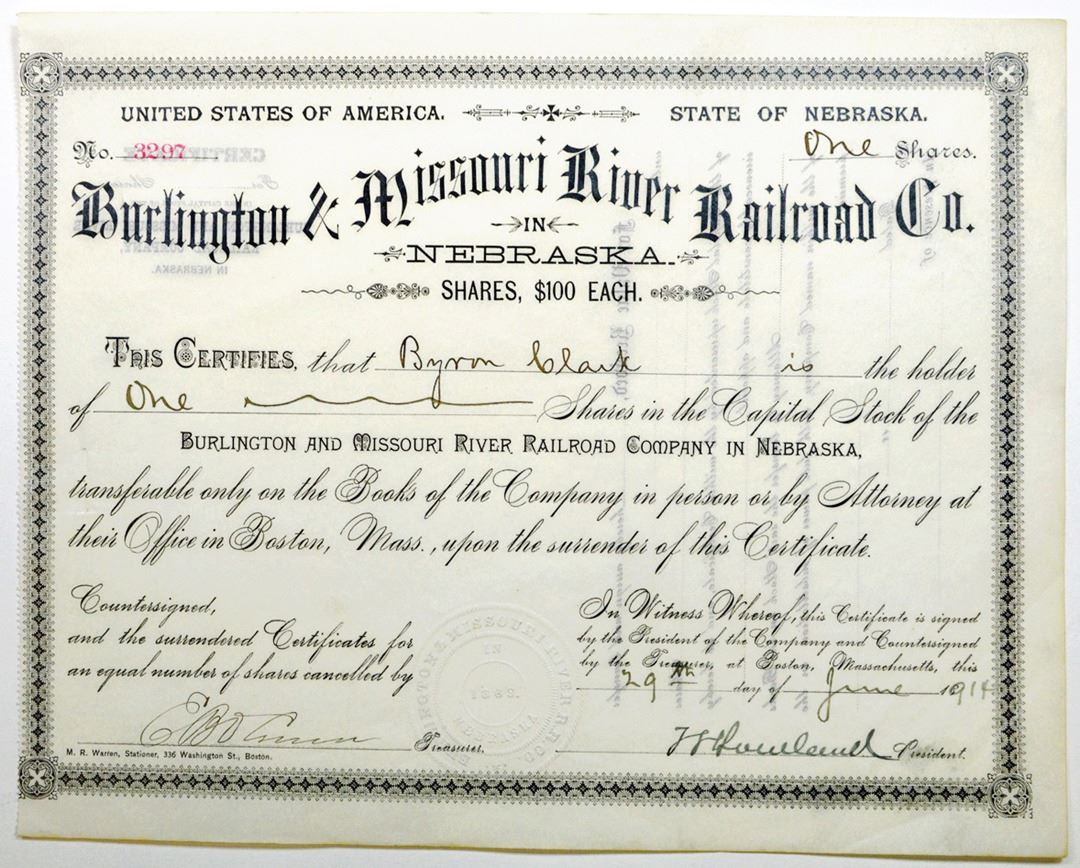 UNITED STATES OF AMERICA. STATE OF NEBRASKA.
No. 3297 One Shares.
Burlington & Missouri River Railroad Co.
IN
NEBRASKA.
SHARES, $100 EACH.
This Certifies, that Byron Clark is the holder
of One Shares in the Capital Stock of the
Burlington and Missouri River Railroad Company in Nebraska,
transferable only on the Books of the Company in person or by Attorney at
their Office in Boston, Mass., upon the surrender of this Certificate.
Countersigned,
and the surrendered Certificates for
an equal number of shares cancelled by
Treasurer.
M. R. Warren, Stationer, 336 Washington St., Boston.
In Witness Whereof, this Certificate is signed
by the President of the Company and Countersigned
by the Treasurer, at Boston, Massachusetts, this
29th day of June 1914
President.